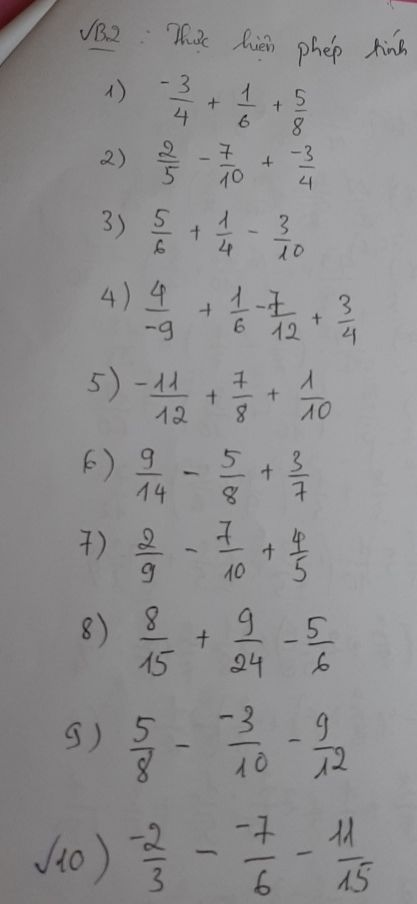 √B.2 : Thực hiện phép tính
1) -3/4 + 1/6 + 5/8
2) 2/5 - 7/10 + -3/4
3) 5/6 + 1/4 - 3/10
4) 4/-9 + 1/6 - 7/12 + 3/4
5) -11/12 + 7/8 + 1/10
6) 9/14 - 5/8 + 3/7
7) 2/9 - 7/10 + 4/5
8) 8/15 + 9/24 - 5/6
9) 5/8 - -3/10 - 9/12
√10) -2/3 - -7/6 - 11/15